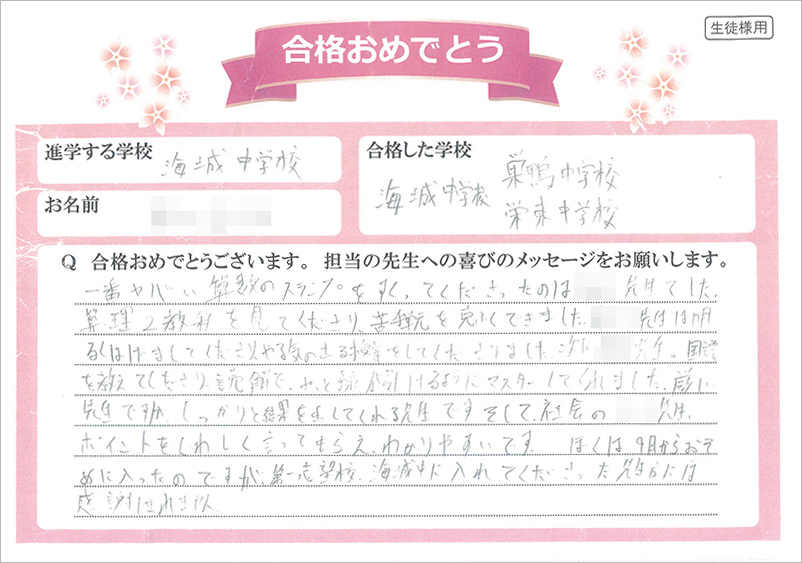 生徒様用
合格おめでとう
進学する学校
海城中学校
お名前
合格した学校
海城中学校
巣鴨中学校
栄東中学校
Q 合格おめでとうございます。担当の先生への喜びのメッセージをお願いします。
一番ヤバい算数のスランプをすくってくださったのは 先生でした。
算、理2教科を見てくださり、苦手を克ふくできました。 先生は明
るくはげましてくださりやる気のでる授業をしてくださりました。次に 先生。国語
を教えてくださり、読解で、 が引けるようにマスターしてくれました。厳しい
先生ですが、しっかりと結果を出してくれる先生です。そして、社会の 先生。
ポイントをくわしく言ってもらえ、わかりやすいです。 ぼくは9月からおそ
めに入ったのですが、第一志望校、海城中に入れてくださった先生がたには
感謝しきれません。